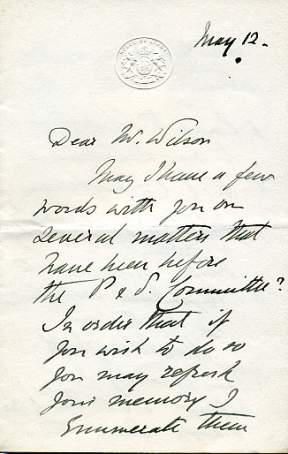 May 12.
Dear Mr. Wilson
May I have a few
words with you on
several matters that
have been before
the P & S. Committee?
In order that if
you wish to do so
you may refresh
your memory I
enumerate them